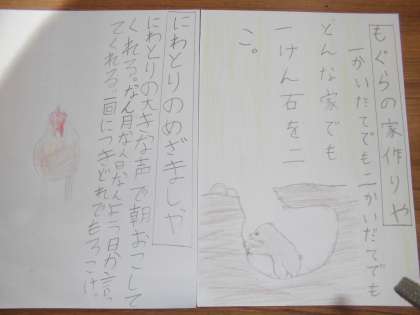 もぐらの家作りや
一かいたてでも二かいだてでも
どんな家でも
一けん石を二
こ。
にわとりのめざましや
にわとりの大きな声で朝おこして
くれる。なん月なん日なんよう日か言っ
てくれる。一回につきどれでも